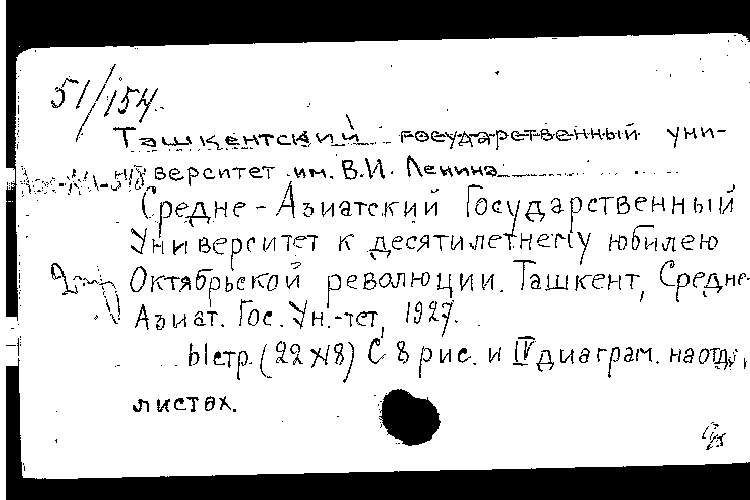 51/154.
Ташкентский государственный уни-
верситет им. В.И. Ленина
Средне-Азиатский Государственный
Университет к десятилетнему юбилею
Октябрьской революции. Ташкент, Средне-
Азиат. Гос. Ун.-тет, 1927.
стр. (22 18) С 8 рис. и IV диаграм. на отд.
листах.